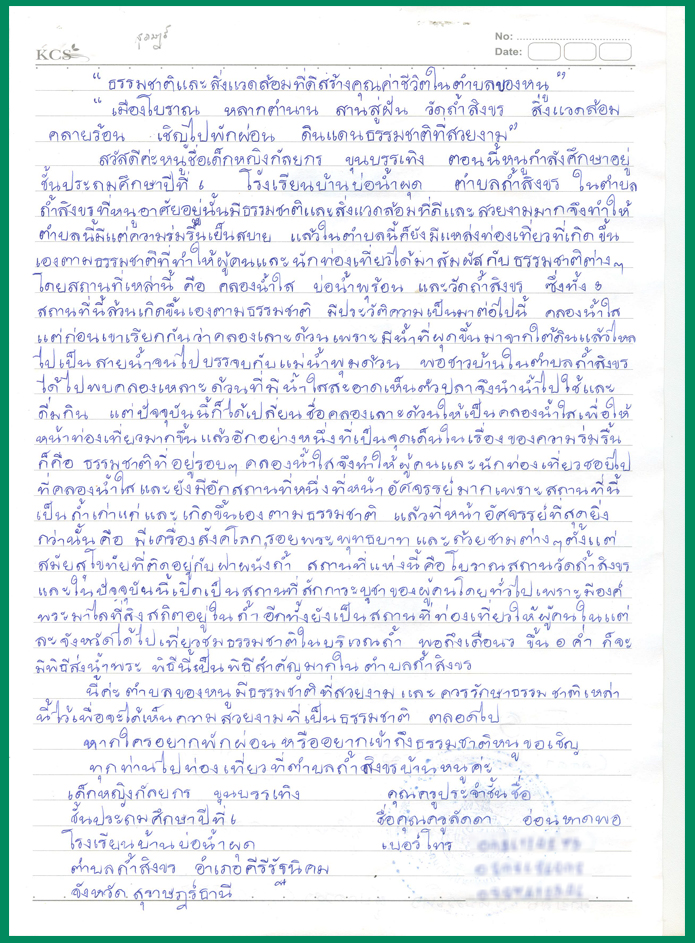 No:
Date:
KCS
" ธรรมชาติและสิ่งแวดล้อมที่ดีสร้างคุณค่าชีวิตในตำบลของหนู "
" เมืองโบราณ หลากตำนาน สานสู่ฝัน วัดถ้ำสิงขร สิ่งแวดล้อม
คลายร้อน เชิญไปพักผ่อน ดินแดนธรรมชาติที่สวยงาม"
สวัสดีค่ะหนูชื่อเด็กหญิงกัลยกร ขุนบรรเทิง ตอนนี้หนูกำลังศึกษาอยู่
ชั้นประถมศึกษาปีที่ ๖ โรงเรียนบ้านบ่อน้ำผุด ตำบลถ้ำสิงขร ในตำบล
ถ้ำสิงขรที่หนูอาศัยอยู่นั้นมีธรรมชาติและสิ่งแวดล้อมที่ดีและสวยงามมากจึงทำให้
ตำบลนี้มีแต่ความร่มรื่นเย็นสบาย แล้วในตำบลนี้ก็ยังมีแหล่งท่องเที่ยวที่เกิดขึ้น
เองตามธรรมชาติที่ทำให้ผู้คนและนักท่องเที่ยวได้มาสัมผัสกับธรรมชาติต่างๆ
โดยสถานที่เหล่านี้ คือ คลองน้ำใส บ่อน้ำพุร้อน และวัดถ้ำสิงขร ซึ่งทั้ง ๓
สถานที่นี้ล้วนเกิดขึ้นเองตามธรรมชาติ มีประวัติความเป็นมาต่อไปนี้ คลองน้ำใส
แต่ก่อนเขาเรียกกันว่าคลองเลาะด้วนเพราะมีน้ำที่ผุดขึ้นมาจากใต้ดินแล้วไหล
ไปเป็นสายน้ำจนไปบรรจบกับแม่น้ำพุมด้วน พอชาวบ้านในตำบลถ้ำสิงขร
ได้ไปพบคลองเหลาะด้วนที่มีน้ำใสสะอาดเห็นตัวปลาจึงนำน้ำไปใช้และ
ดื่มกิน แต่ปัจจุบันนี้ก็ได้เปลี่ยนชื่อคลองเลาะด้วนให้เป็นคลองน้ำใสเพื่อให้
หน้าท่องเที่ยวมากขึ้นแล้วอีกอย่างหนึ่งที่เป็นจุดเด่นในเรื่องของความร่มรื่น
ก็คือ ธรรมชาติที่อยู่รอบๆ คลองน้ำใสจึงทำให้ผู้คนและนักท่องเที่ยวชอบไป
ที่คลองน้ำใสและยังมีอีกสถานที่หนึ่งที่หน้าอัศจรรย์มากเพราะสถานที่นี้
เป็นถ้ำเก่าแก่และเกิดขึ้นเองตามธรรมชาติ แล้วที่หน้าอัศจรรย์ที่สุดยิ่ง
กว่านั้นคือ มีเครื่องสังคโลก,รอยพระพุทธบาท และถ้วยชามต่างๆตั้งแต่
สมัยสุโขทัยที่ติดอยู่กับฝาผนังถ้ำ สถานที่แห่งนี้คือโบราณสถานวัดถ้ำสิงขร
และในปัจจุบันนี้เปิดเป็นสถานที่สักการะบูชาของผู้คนโดยทั่วไปเพราะมีองค์
พระมาไลที่สิงสถิตอยู่ในถ้ำ อีกทั้งยังเป็นสถานที่ท่องเที่ยวให้ผู้คนในแต่
ละจังหวัดได้ไปเที่ยวชมธรรมชาติในบริเวณถ้ำ พอถึงเดือน๖ ขึ้น ๑ ค่ำ ก็จะ
มีพิธีส่งน้ำพระ พิธีนี้เป็นพิธีสำคัญมากในตำบลถ้ำสิงขร
นี้ค่ะ ตำบลของหนูมีธรรมชาติที่สวยงาม และ ควรรักษาธรรมชาติเหล่า
นี้ไว้เพื่อจะได้เห็นความสวยงามที่เป็นธรรมชาติ ตลอดไป
หากใครอยากพักผ่อนหรืออยากเข้าถึงธรรมชาติหนูขอเชิญ
ทุกท่านไปท่องเที่ยวที่ตำบลถ้ำสิงขรบ้านหนูค่ะ
เด็กหญิงกัลยกร ขุนบรรเทิง คุณครูประจำชั้นชื่อ
ชั้นประถมศึกษาปีที่ ๖ ชื่อคุณครูลัดดา อ่อนหาดพอ
โรงเรียนบ้านบ่อน้ำผุด เบอร์โทร
ตำบลถ้ำสิงขร อำเภอคีรีรัฐนิคม
จังหวัด สุราษฎร์ธานี